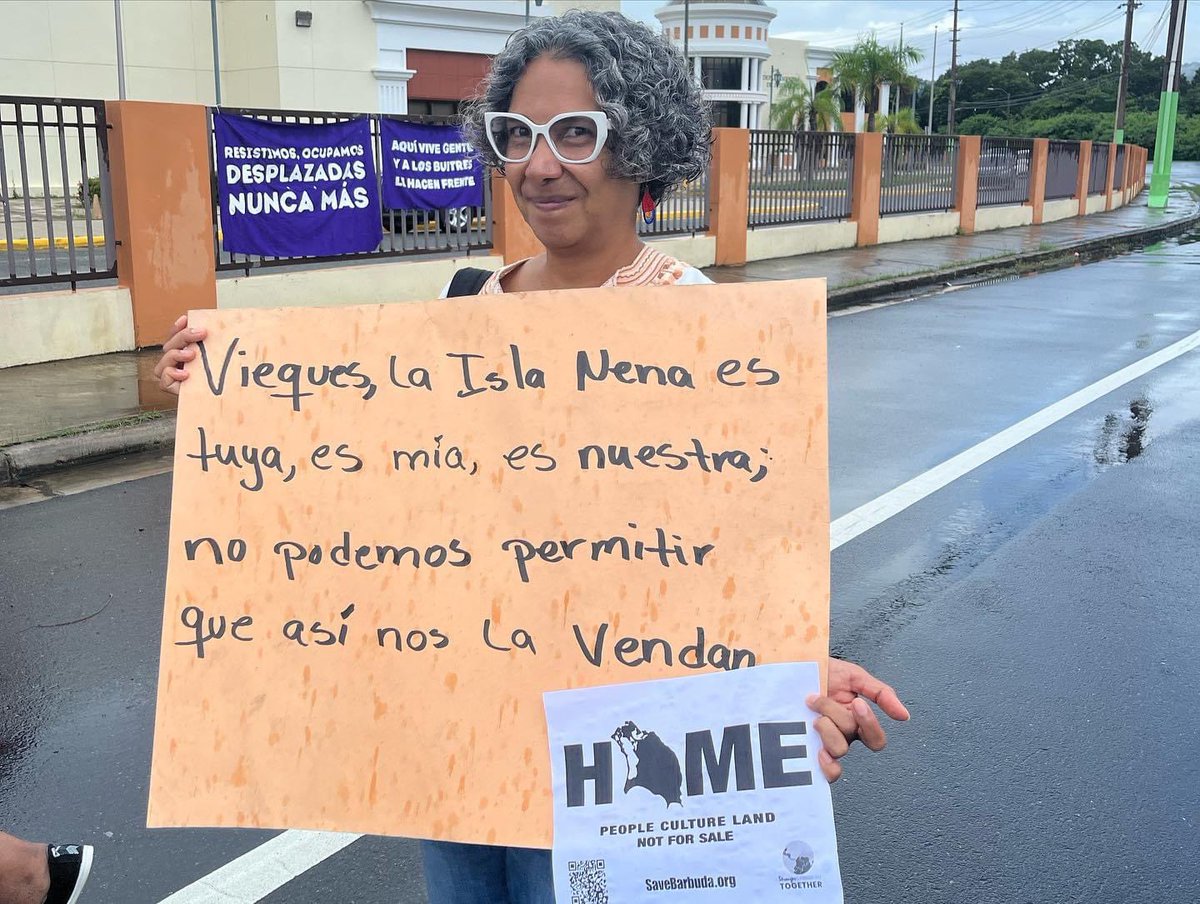 RESISTIMOS, OCUPAMOS
DESPLAZADAS
NUNCA MÁS
AQUÍ VIVE GENTE
Y A LOS BUITRES
LI HACEN FRENTE
Vieques, la Isla Nena es
tuya, es mía, es nuestra;
no podemos permitir
que así nos la Vendan
HOME
PEOPLE CULTURE LAND
NOT FOR SALE
SaveBarbuda.org
TOGETHER